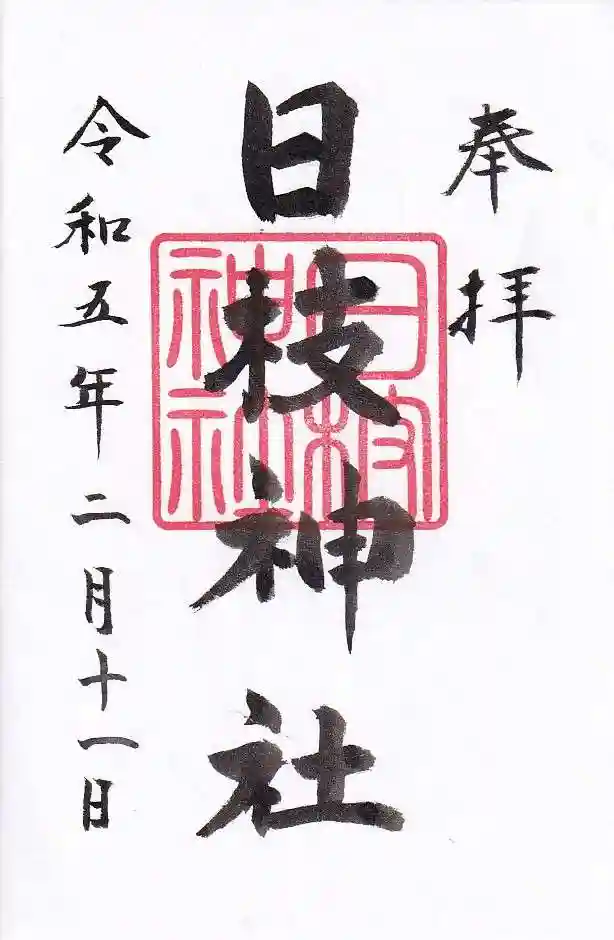 奉拝
日枝神社
日枝神社
令和五年二月十一日